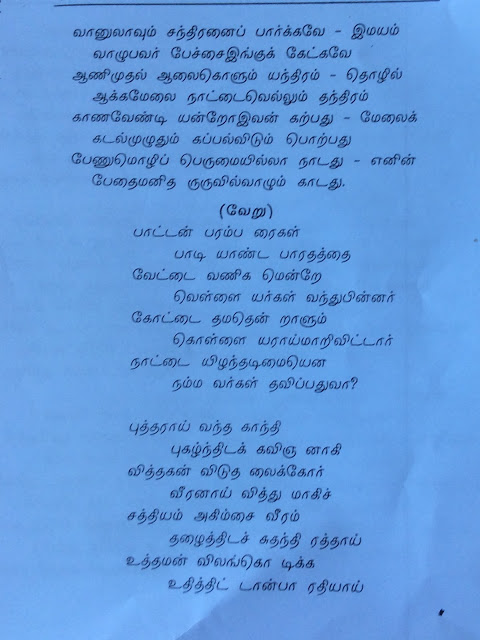 வானுலாவும் சந்திரனைப் பார்க்கவே - இமயம்
வாழுபவர் பேச்சைஇங்குக் கேட்கவே
ஆணிமுதல் ஆலைகொளும் யந்திரம் - தொழில்
ஆக்கமேலை நாட்டைவெல்லும் தந்திரம்
காணவேண்டி யன்றோஇவன் கற்பது - மேலைக்
கடல்முழுதும் கப்பல்விடும் பொற்பது
பேணுமொழிப் பெருமையில்லா நாடது - எனின்
பேதைமனித ருருவில்வாழும் காடது.
(வேறு)
பாட்டன் பரம்ப ரைகள்
பாடி யாண்ட பாரதத்தை
வேட்டை வணிக மென்றே
வெள்ளை யர்கள் வந்துபின்னர்
கோட்டை தமதென் றாளும்
கொள்ளை யராய்மாறிவிட்டார்
நாட்டை யிழந்தடிமையென
நம்ம வர்கள் தவிப்பதுவா?
புத்தராய் வந்த காந்தி
புகழ்ந்திடக் கவிஞ னாகி
வித்தகன் விடுத லைக்கோர்
வீரனாய் வித்து மாகிச்
சத்தியம் அகிம்சை வீரம்
தழைத்திடச் சுதந்தி ரத்தாய்
உத்தமன் விலங்கொ டிக்க
உதித்திட் டான்பா ரதியாய்